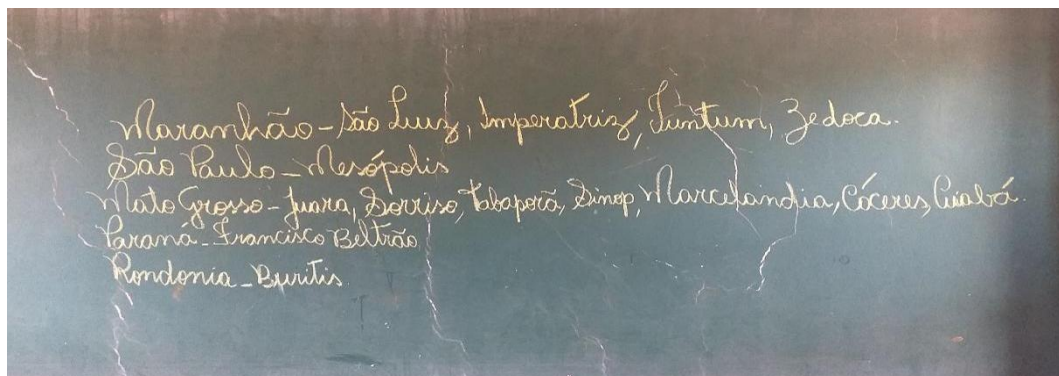 Maranhão - São Luiz, Imperatriz, Tuntum, Zedoca.
São Paulo - Mesópolis
Mato Grosso - Juara, Sorriso, Tabaporã, Sinop, Marcelandia, Cáceres, Cuiabá.
Paraná - Francisco Beltrão
Rondonia - Buritis